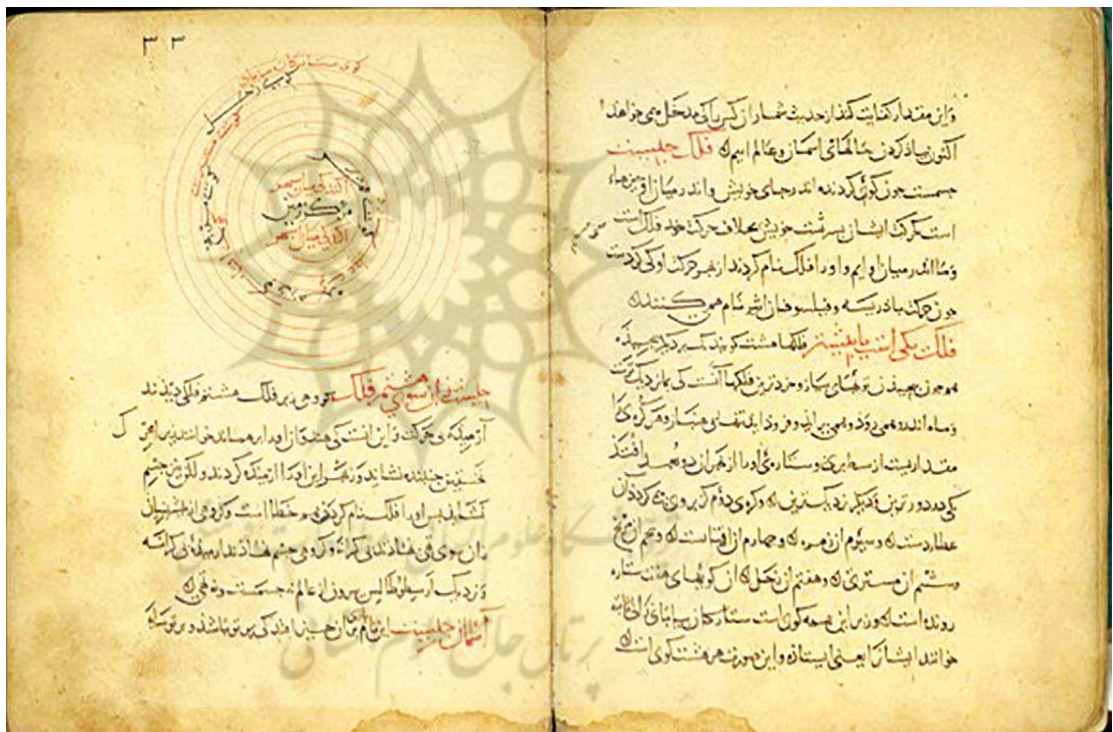 واین مقدار کفایت کند از حدیث شمار آن کس را کی مدخل همی خواهد
اکنون بیاذ کردن حالهای اسمان وعالم اییم فلک چیست
جسمست چون کوئی کردنده اندر جای خویش واندر میان او چیزهاء
است کی حرکت ایشان بسرشت خویش بخلاف حرکت خوذ فلک است
وما اندر میان او ایم و او را فلک نام کردند از بهر حرکت او کی کردست
چون حرکت باذریسه وفیلسوفان اثیر نام همی کنند
فلک یکی است یا بیشتر فلکها هشت کوی اند یک بر دیکر پیچیذه
همچون پیچیذن توبهای پیاز وخردترین فلکها آنست کی بما نزدیک ترست
وماه اندرو همی روذ وهمی براید وفروذ اید تنها بی هنباز وهر کرهٔ را
مقداریست از ستبری وستارهٔ او را از بهر ان دو بعد افتذ
یکی دورترین ودیکر نزدیکترین وکرهٔ دوم کی بر وی همی کردذ آن
عطاردست وسیوم ان زهره وچهارم ان افتابست وپنجم ان مریخ
وششم ان مشتری وهفتم ان زحل کویهای هفت ستاره
رونده است وزبر این همه کوی است ستارکان بیابانی را کی ثابته
خوانند ایشانرا یعنی ایستاذه واین صورت هر هشت کوی است
۳۳
کوی ستارکان بیابانی
کوی زحل
کوی مشتری
کوی مریخ
آکندکی میان سپهر
مرکز زمین
آکندکی میان سپهر
چیست از سوی هشتم فلک کروهی زبر فلک هشتم فلکی دیذند
آرمیذه بی حرکت واین انست کی هندوان او را برهماند خوانند زیرا محرک
نخستین جنبنده نشاید وز بهر این او را ارمیذه کردند ولکن نیز جسم
نشاید پس او را فلک نام کردن خطا است وکروهی از پیشینیان
زان سوی تهی نهاذند بی کرانه وکروهی جسم نهاذند ارمیذه بی کرانه
ونزدیک ارسطوطالس بیرون از عالم نه جسمست ونه تهی
آسمان چیست این نام بر ان چیز افتد کی زبر تو باشذ وبر تو سایه
پرتال جامع علوم انسانی